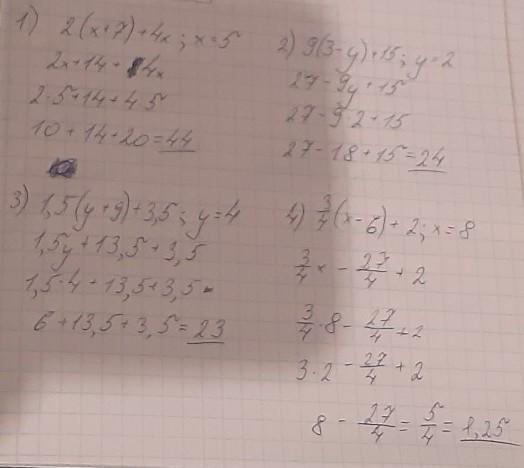 1) 2(x+7)+4x; x=5
2x+14+4x
2·5+14+4·5
10+14+20=44
2) 9(3-y)+15; y=2
27-9y+15
27-9·2+15
27-18+15=24
3) 1,5(y+9)+3,5; y=4
1,5y+13,5+3,5
1,5·4+13,5+3,5
6+13,5+3,5=23
4) 3/4(x-6)+2; x=8
3/4x - 27/4 + 2
3/4·8 - 27/4 + 2
3·2 - 27/4 + 2
8 - 27/4 = 5/4 = 1,25